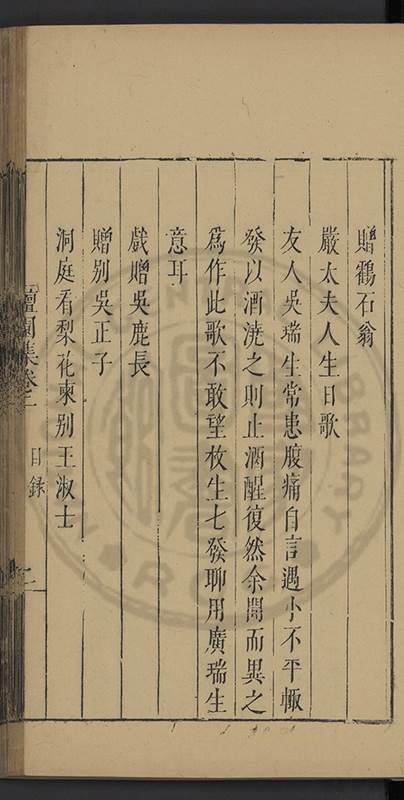 贈鶴石翁
嚴太夫人生日歌
友人吳瑞生常患腹痛自言遇小不平輙
發以酒澆之則止酒醒復然余聞而異之
為作此歌不敢望枚生七發聊用廣瑞生
意耳
戲贈吳鹿長
贈別吳正子
洞庭看梨花柬別王淑士
檀園集卷二 目錄 二